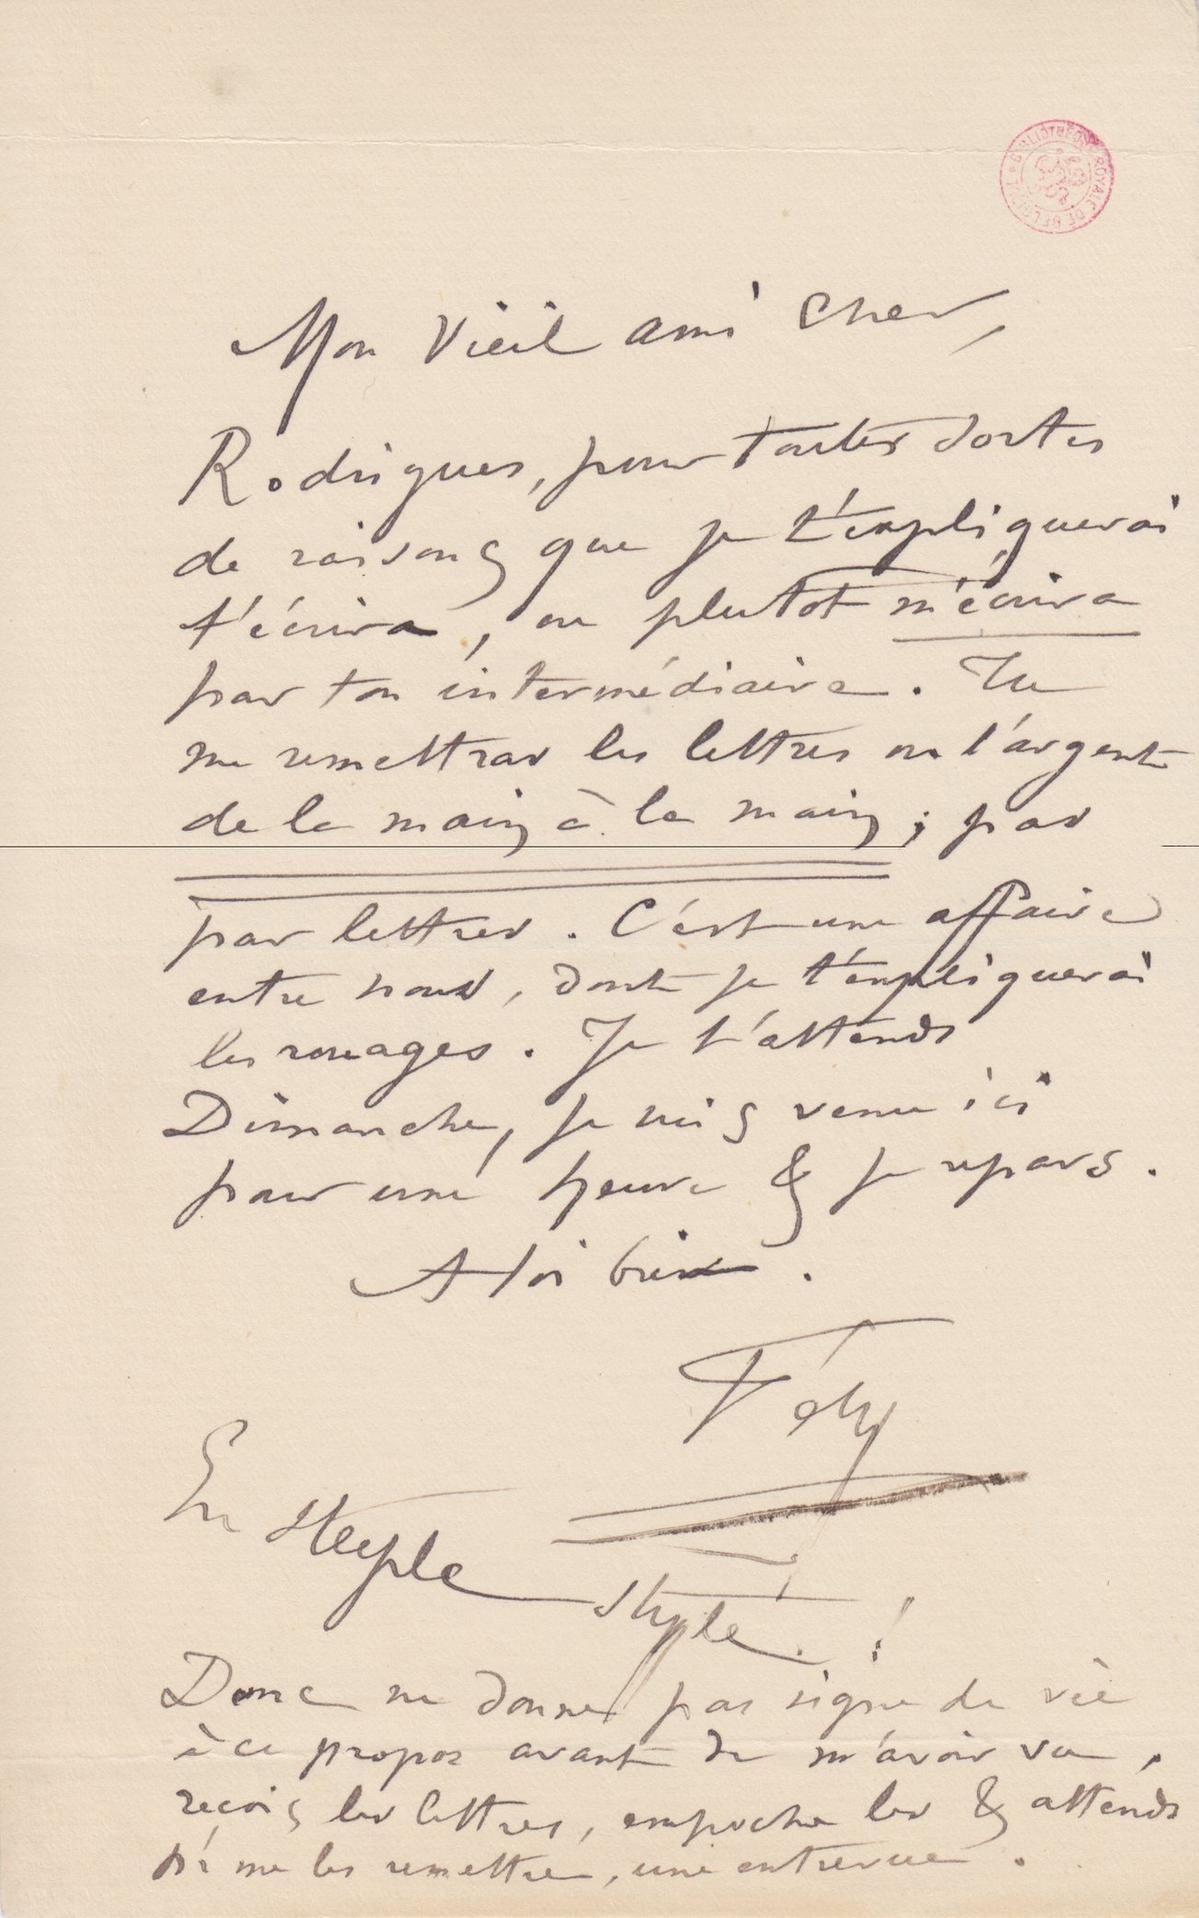 BIBLIOTHÈQUE ROYALE DE BELGIQUE
Mon Vieil ami cher,
Rodrigues, pour toutes sortes
de raisons que je t'expliquerai
t'écrira, ou plutot m'écrira
par ton intermédiaire. Tu
me remettras les lettres ou l'argent
de la main à la main ; pas
par lettres. C'est une affaire
entre nous, dont je t'expliquerai
les rouages. Je t'attends
Dimanche, je suis venu ici
pour une heure & je repars.
A toi bien.
Fély
En
style.!
Donc ne donne pas signe de vie
à ce propos avant de m'avoir vu,
reçois les lettres, empoche les & attends
pr me les remettre, une entrevue.